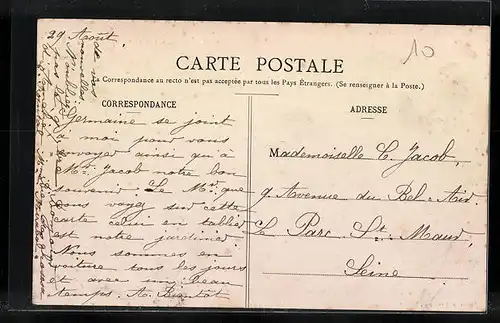 29 Août,
10
CARTE POSTALE
La Correspondance au recto n'est pas acceptée par tous les Pays Étrangers. (Se renseigner à la Poste.)
CORRESPONDANCE
Germaine se joint
à moi pour vous
envoyer ainsi qu'à
Mr. Jacob notre bon
souvenir. Le Mr. que
vous voyez sur cette
carte celui en tablier
est notre jardinier.
Nous sommes en
voiture tous les jours
et avec un beau
temps. A. Bientôt
de vos
nouvelles
ADRESSE
Mademoiselle C. Jacob,
9 Avenue du Bel-Air.
Le Parc St. Maur,
Seine